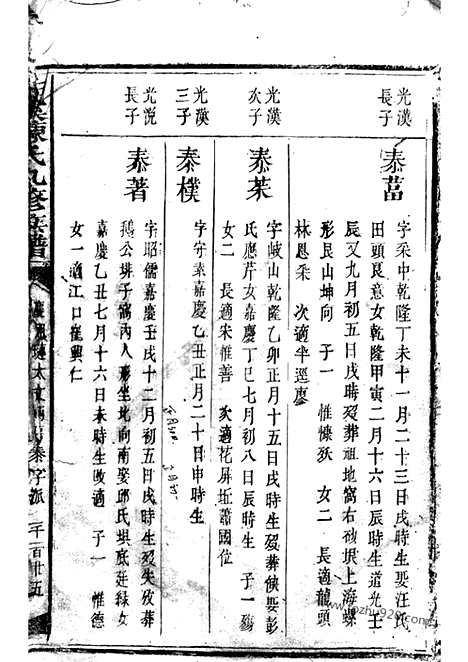 光漢
長子
泰葍
字采中乾隆丁未十一月二十三日戌時生娶汪氏
田頭良意女乾隆甲寅二月十六日辰時生道光壬
辰又九月初五日戌時歿葬祖地窩右砂垠上海螺
形艮山坤向 子一 惟慷歿 女二 長適龍頭
林恩来 次適半逕廖
光漢
次子
泰茱
字岐山乾隆乙卯正月十五日戌時生歿葬失娶彭
氏應芹女嘉慶丁巳七月初八日辰時生 子一 殤
女二 長適宋惟善 次適花屏坵蕭國位
光漢
三子
泰樸
字守素嘉慶乙丑正月二十日申時生
光說
長子
泰著
字昭儒嘉慶壬戌十二月初五日戌時生歿失攷葬
鵝公垇子窩內人形坐地向南娶邱氏垻底廷緑女
嘉慶乙丑七月十六日未時生攺適 子一 惟德
女一適江口崔興仁
陳氏九修族譜
泰字派
二千一百卅五